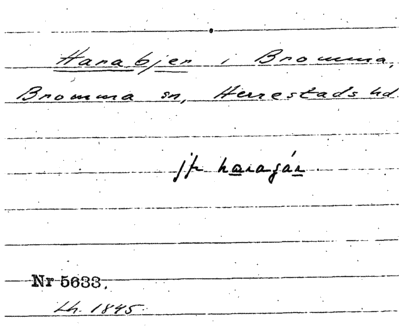 Harabjer i Bromma,
Bromma sn, Herrestads hd
jfr haragár
Nr 5633.
Lh. 1845.